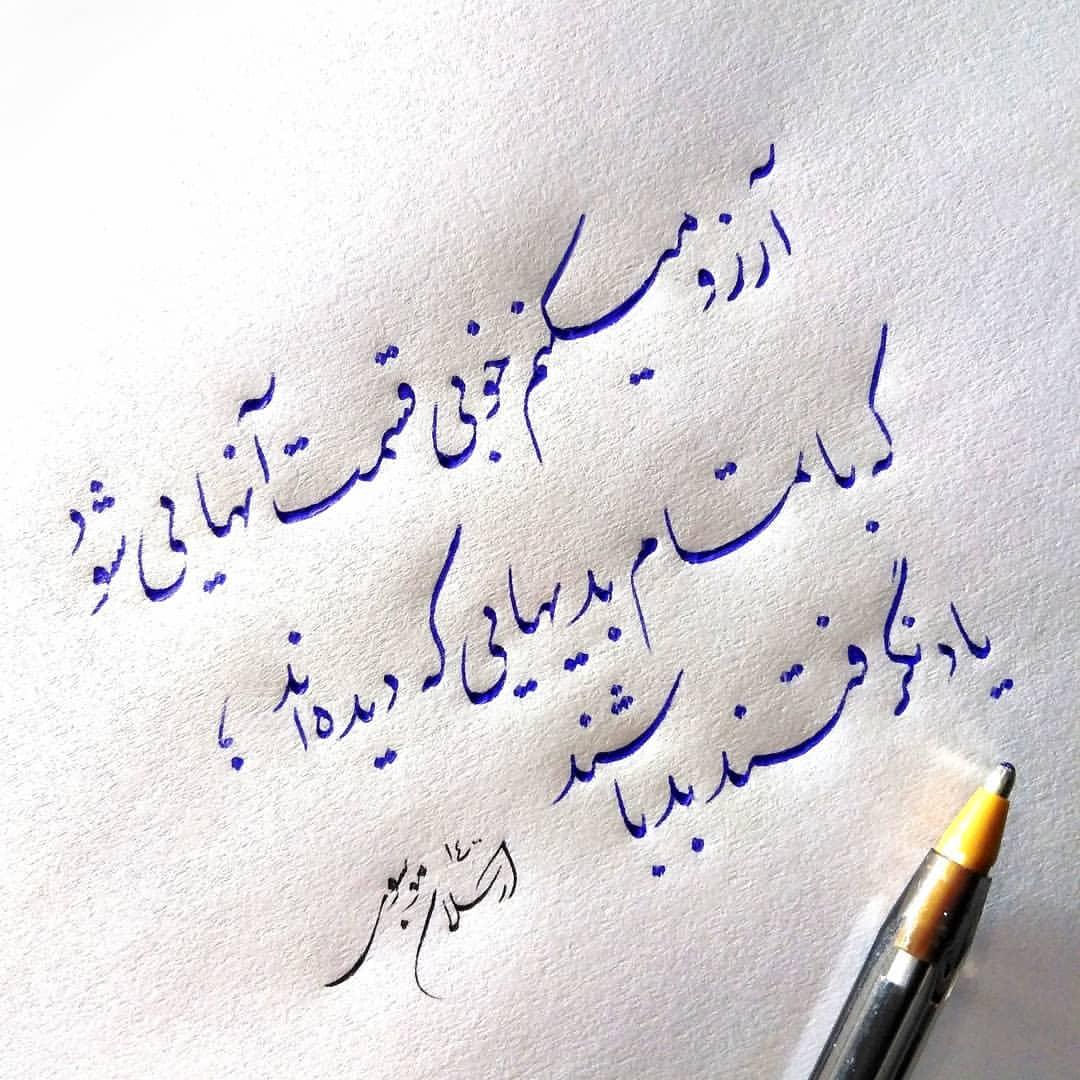 آرزو میکنم خوبی قسمت آنهایی شود
که با تمام بدیهایی که دیده‌اند ؛
یاد نگرفتند بد باشند
ارسلان موسوی
۱۴۰۰